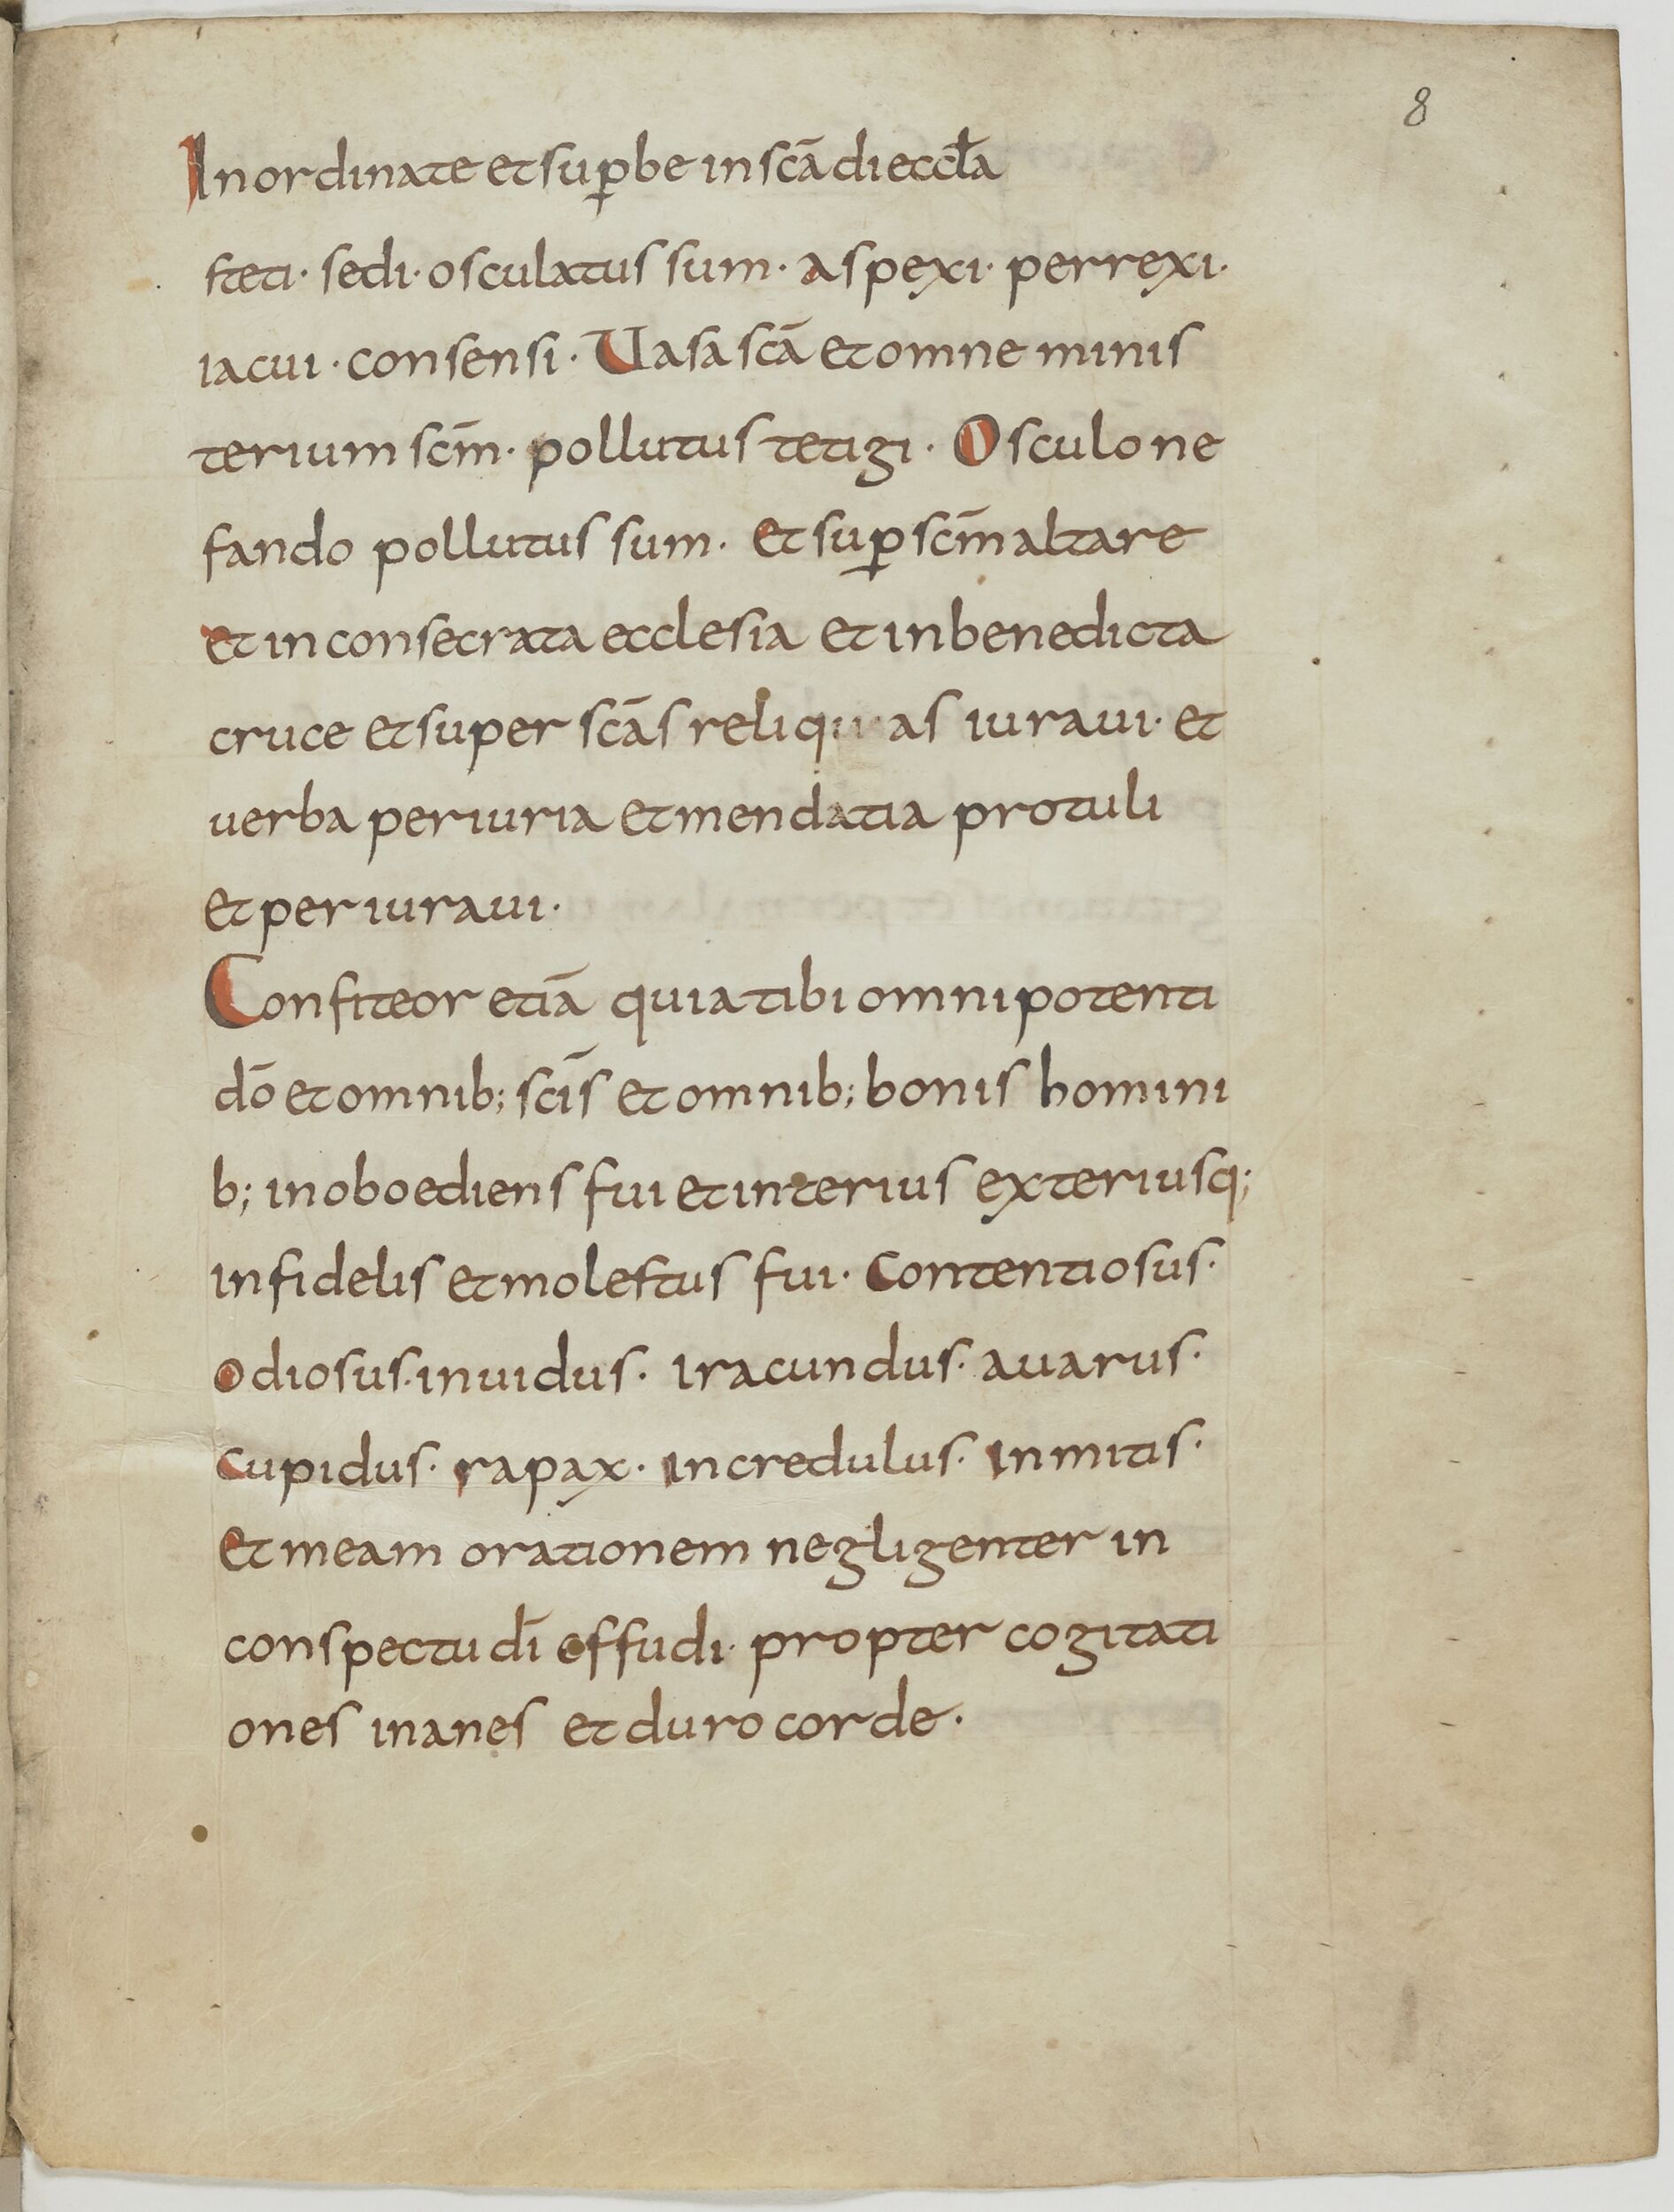 8
Inordinate et sup̱be in scā di eccɫa
steti· sedi· osculatus sum· aspexi· perrexi·
iacui· consensi· Uasa scā et omne minis
terium scm̄· pollutus tetigi· Osculo ne
fando pollutus sum· et sup̱ scm̄ altare
et in consecrata ecclesia et in benedicta
cruce et super scās reliquias iuraui· et
uerba periuria et mendatia protuli
et periuraui·
Confiteor etiā quia tibi omnipotenti
dō et omnib; scīs et omnib; bonis homini
b; inoboediens fui et interius exteriusq;
infidelis et molestus fui· Contentiosus·
odiosus· inuidus· iracundus· auarus·
Cupidus· rapax· incredulus· Inmitis·
Et meam orationem negligenter in
conspectu dī effudi· propter cogitati
ones inanes et duro corde·